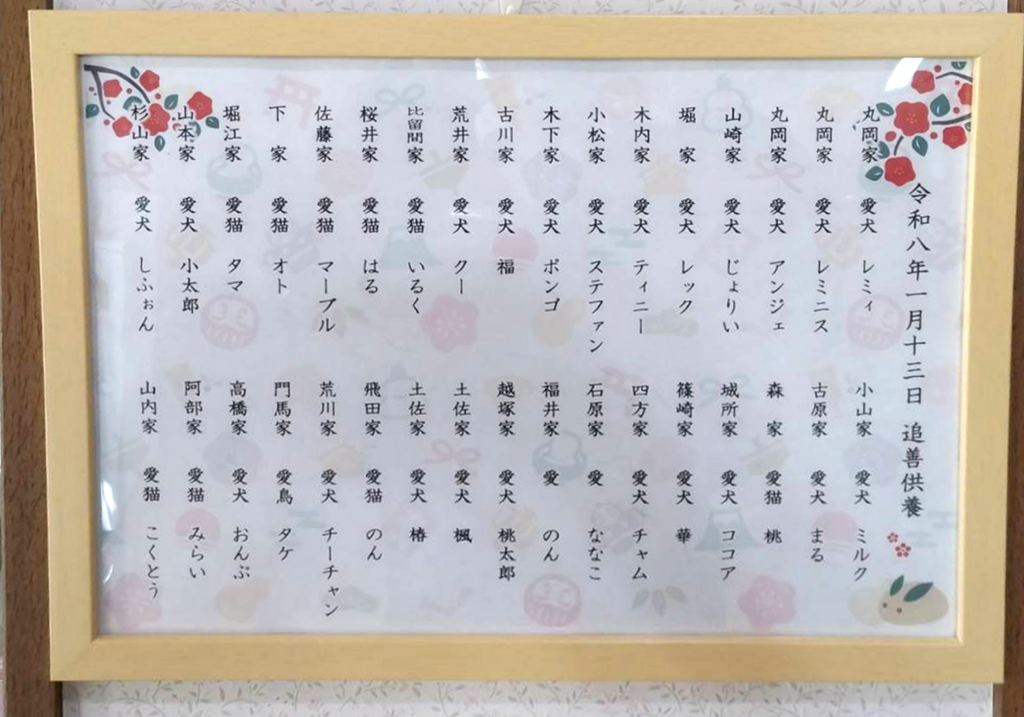 令和八年一月十三日 追善供養
丸岡家 愛犬 レミィ
丸岡家 愛犬 レミニス
丸岡家 愛犬 アンジェ
山崎家 愛犬 じょりい
堀 家 愛犬 レック
木内家 愛犬 ティニー
小松家 愛犬 ステファン
木下家 愛犬 ボンゴ
古川家 愛犬 福
荒井家 愛犬 クー
比留間家 愛猫 いるく
桜井家 愛猫 はる
佐藤家 愛猫 マーブル
下 家 愛猫 オト
堀江家 愛猫 タマ
山本家 愛犬 小太郎
杉山家 愛犬 しふぉん
小山家 愛犬 ミルク
古原家 愛犬 まる
森 家 愛猫 桃
城所家 愛犬 ココア
篠崎家 愛犬 華
四方家 愛犬 チャム
石原家 愛 ななこ
福井家 愛 のん
越塚家 愛犬 桃太郎
土佐家 愛犬 楓
土佐家 愛犬 椿
飛田家 愛猫 のん
荒川家 愛犬 チーチャン
門馬家 愛鳥 タケ
高橋家 愛犬 おんぷ
阿部家 愛猫 みらい
山内家 愛猫 こくとう